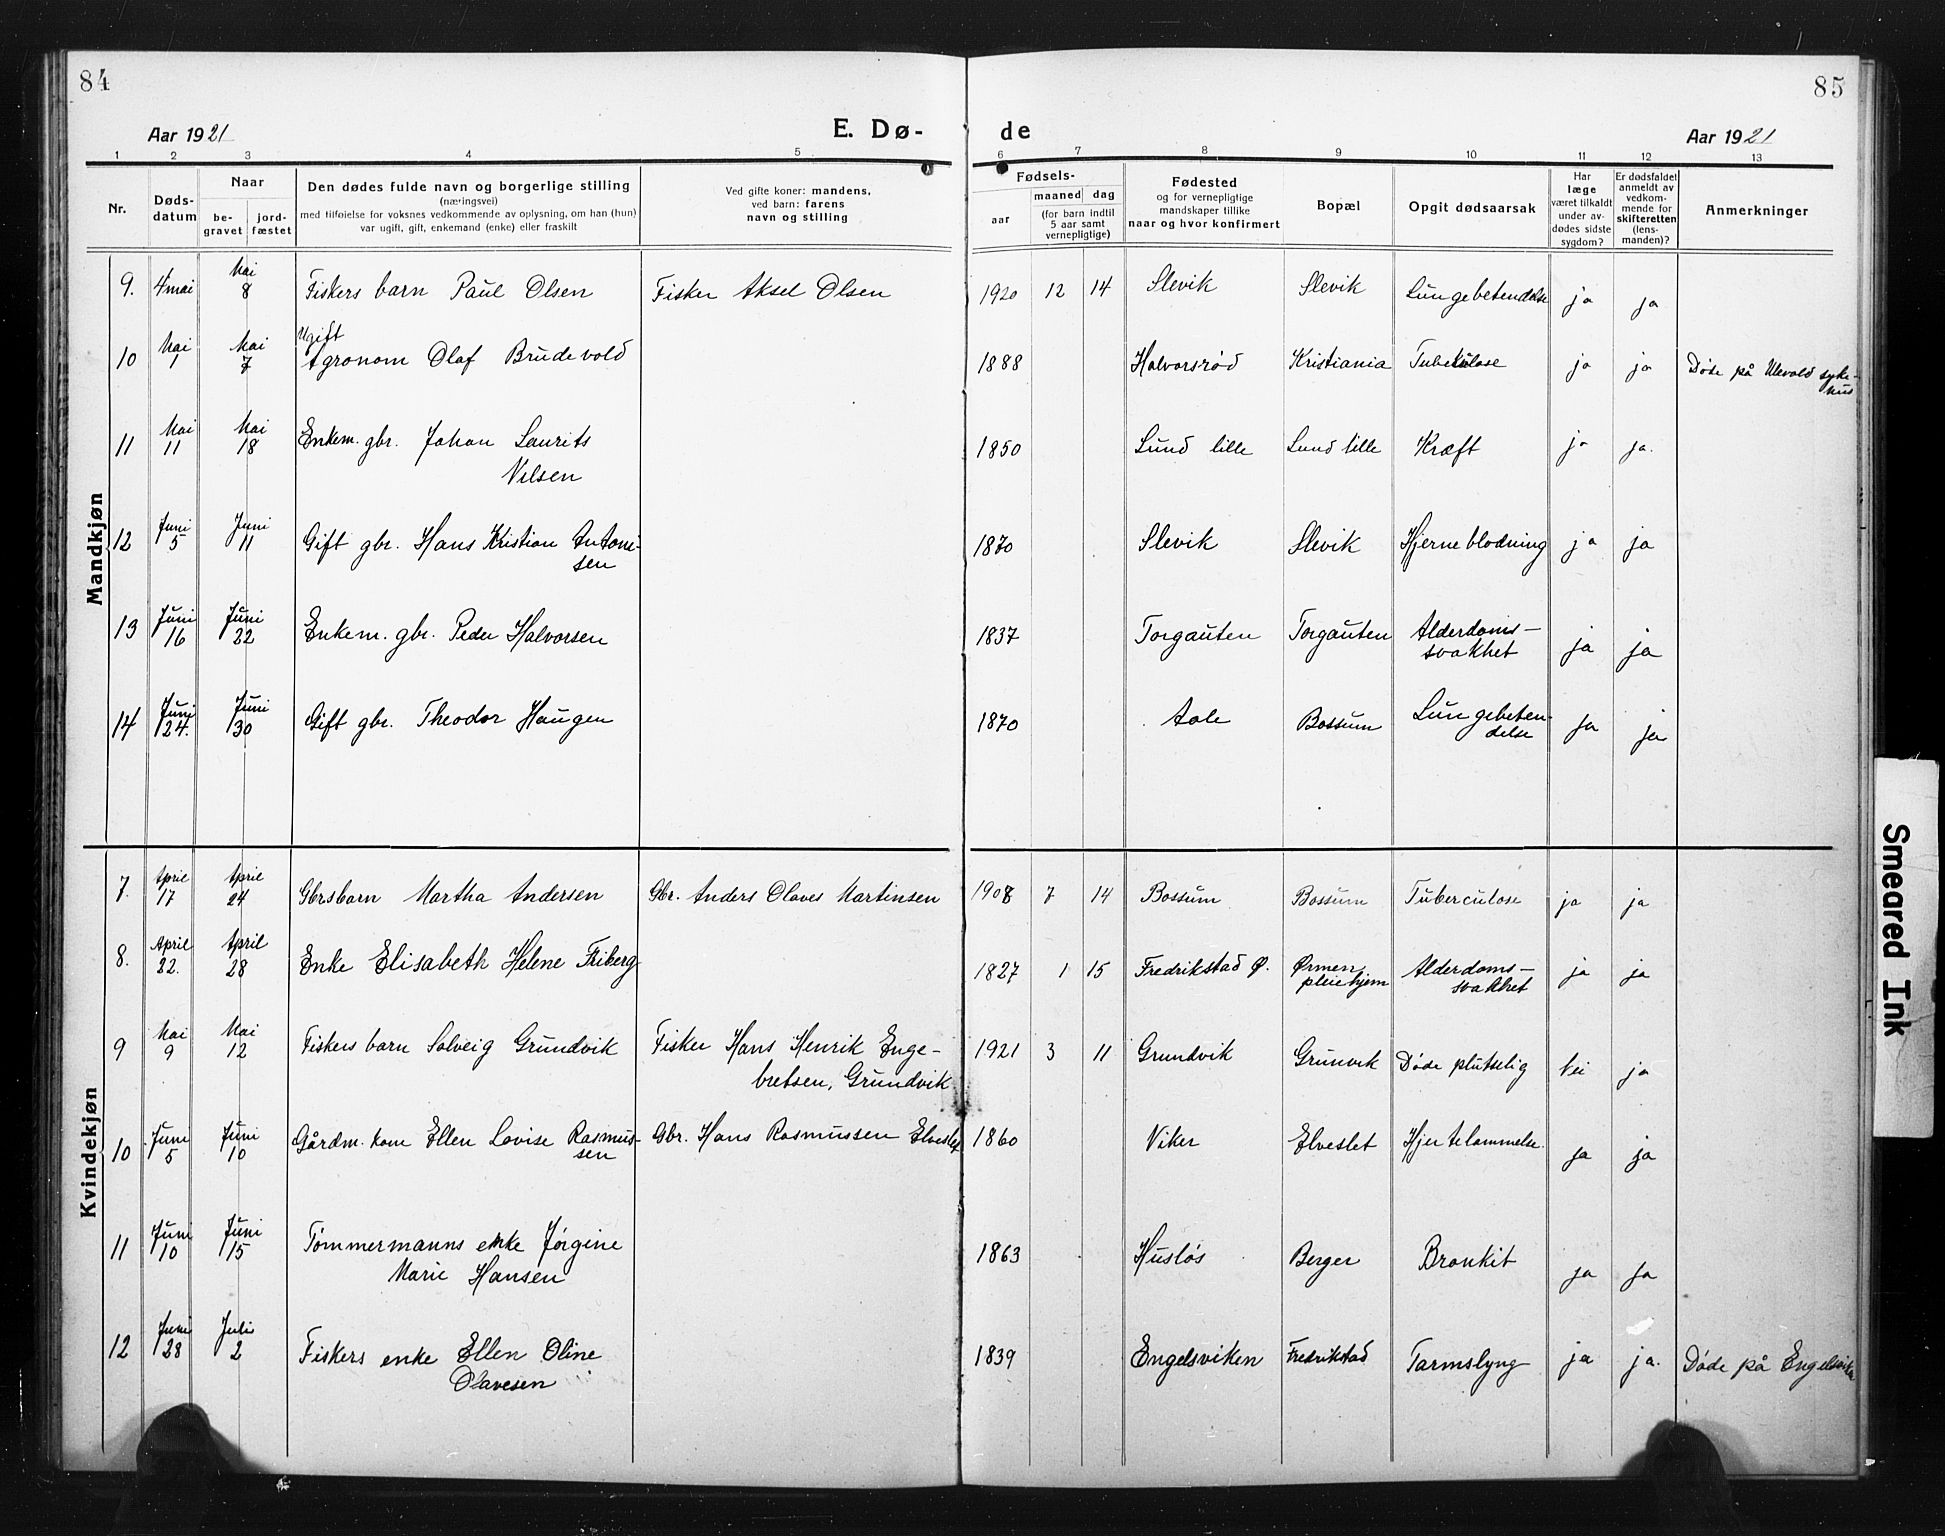 84
85
Aar 1921
E. Dø-
de
Aar 1921
1 2 3 4 5 6 7 8 9 10 11 12 13
Nr.
Døds-
datum
Naar
be-
gravet
jord-
fæstet
Den dødes fulde navn og borgerlige stilling
(næringsvei)
med tilføielse for voksnes vedkommende av oplysning, om han (hun)
var ugift, gift, enkemand (enke) eller fraskilt
Ved gifte koner: mandens,
ved barn: farens
navn og stilling
Fødsels-
aar
maaned dag
(for barn indtil
5 aar samt
vernepligtige)
Fødested
og for vernepligtige
mandskaper tillike
naar og hvor konfirmert
Bopæl
Opgit dødsaarsak
Har
læge
været tilkaldt
under av-
dødes sidste
sygdom?
Er dødsfaldet
anmeldt av
vedkom-
mende for
skifteretten
(lens-
manden)?
Anmerkninger
Mandkjøn
9. 4 mai Mai 8 Fiskers barn Paul Olsen Fisker Aksel Olsen 1920 12 14 Slevik Slevik Lungebetendelse ja ja
Ugift
10 Mai 1 Mai 7 Agronom Olaf Brudevold 1888 Halvorsrød Kristiania Tuberkulose ja ja Døde på Ulevold syke-
hus
11 Mai 11 Mai 18 Enkem. gbr. Johan Laurits 1850 Lund lille Lund lille Kræft ja ja.
Nilsen
12 Juni 5 Juni 11 Gift gbr. Hans Kristian Antoni- 1870 Slevik Slevik Hjerneblodning ja ja
sen
13 Juni 16 Juni 22 Enkem. gbr. Peder Halvorsen 1837 Torgauten Torgauten Alderdoms- ja ja
svakhet
14 Juni 24. Juni 30 Gift gbr. Theodor Haugen 1870 Aale Bossum Lungebeten- ja ja
delse
Kvindekjøn
7. April 17 April 24 Gbrsbarn Martha Andersen Gbr. Anders Olaves Martinsen 1908 7 14 Bossum Bossum Tuberculose ja ja
8. April 22. April 28 Enke Elisabeth Helene Friberg 1827 1 15 Fredrikstad Ø. Ørmen Alderdoms- ja ja
pleiehjem svakhet
9 Mai 9 Mai 12 Fiskers barn Solveig Grundvik Fisker Hans Henrik Enge- 1921 3 11 Grundvik Grunvik Døde plutselig Nei ja
bretsen, Grundvik
10 Juni 5 Juni 10 Gårdm. kone Ellen Lovise Rasmus- Gbr. Hans Rasmussen Elveslet 1860 Viker Elveslet Hjertelammelse. ja ja
sen
11 Juni 10 Juni 15 Tømmermanns enke Jørgine 1863 Husløs Berger Bronkit ja ja
Marie Hansen
12 Juni 28 Juli 2 Fiskers enke Ellen Oline 1839 Engelsviken Fredrikstad Tarmslyng ja ja. Døde på Engelsviken
Olavesen
Smeared Ink